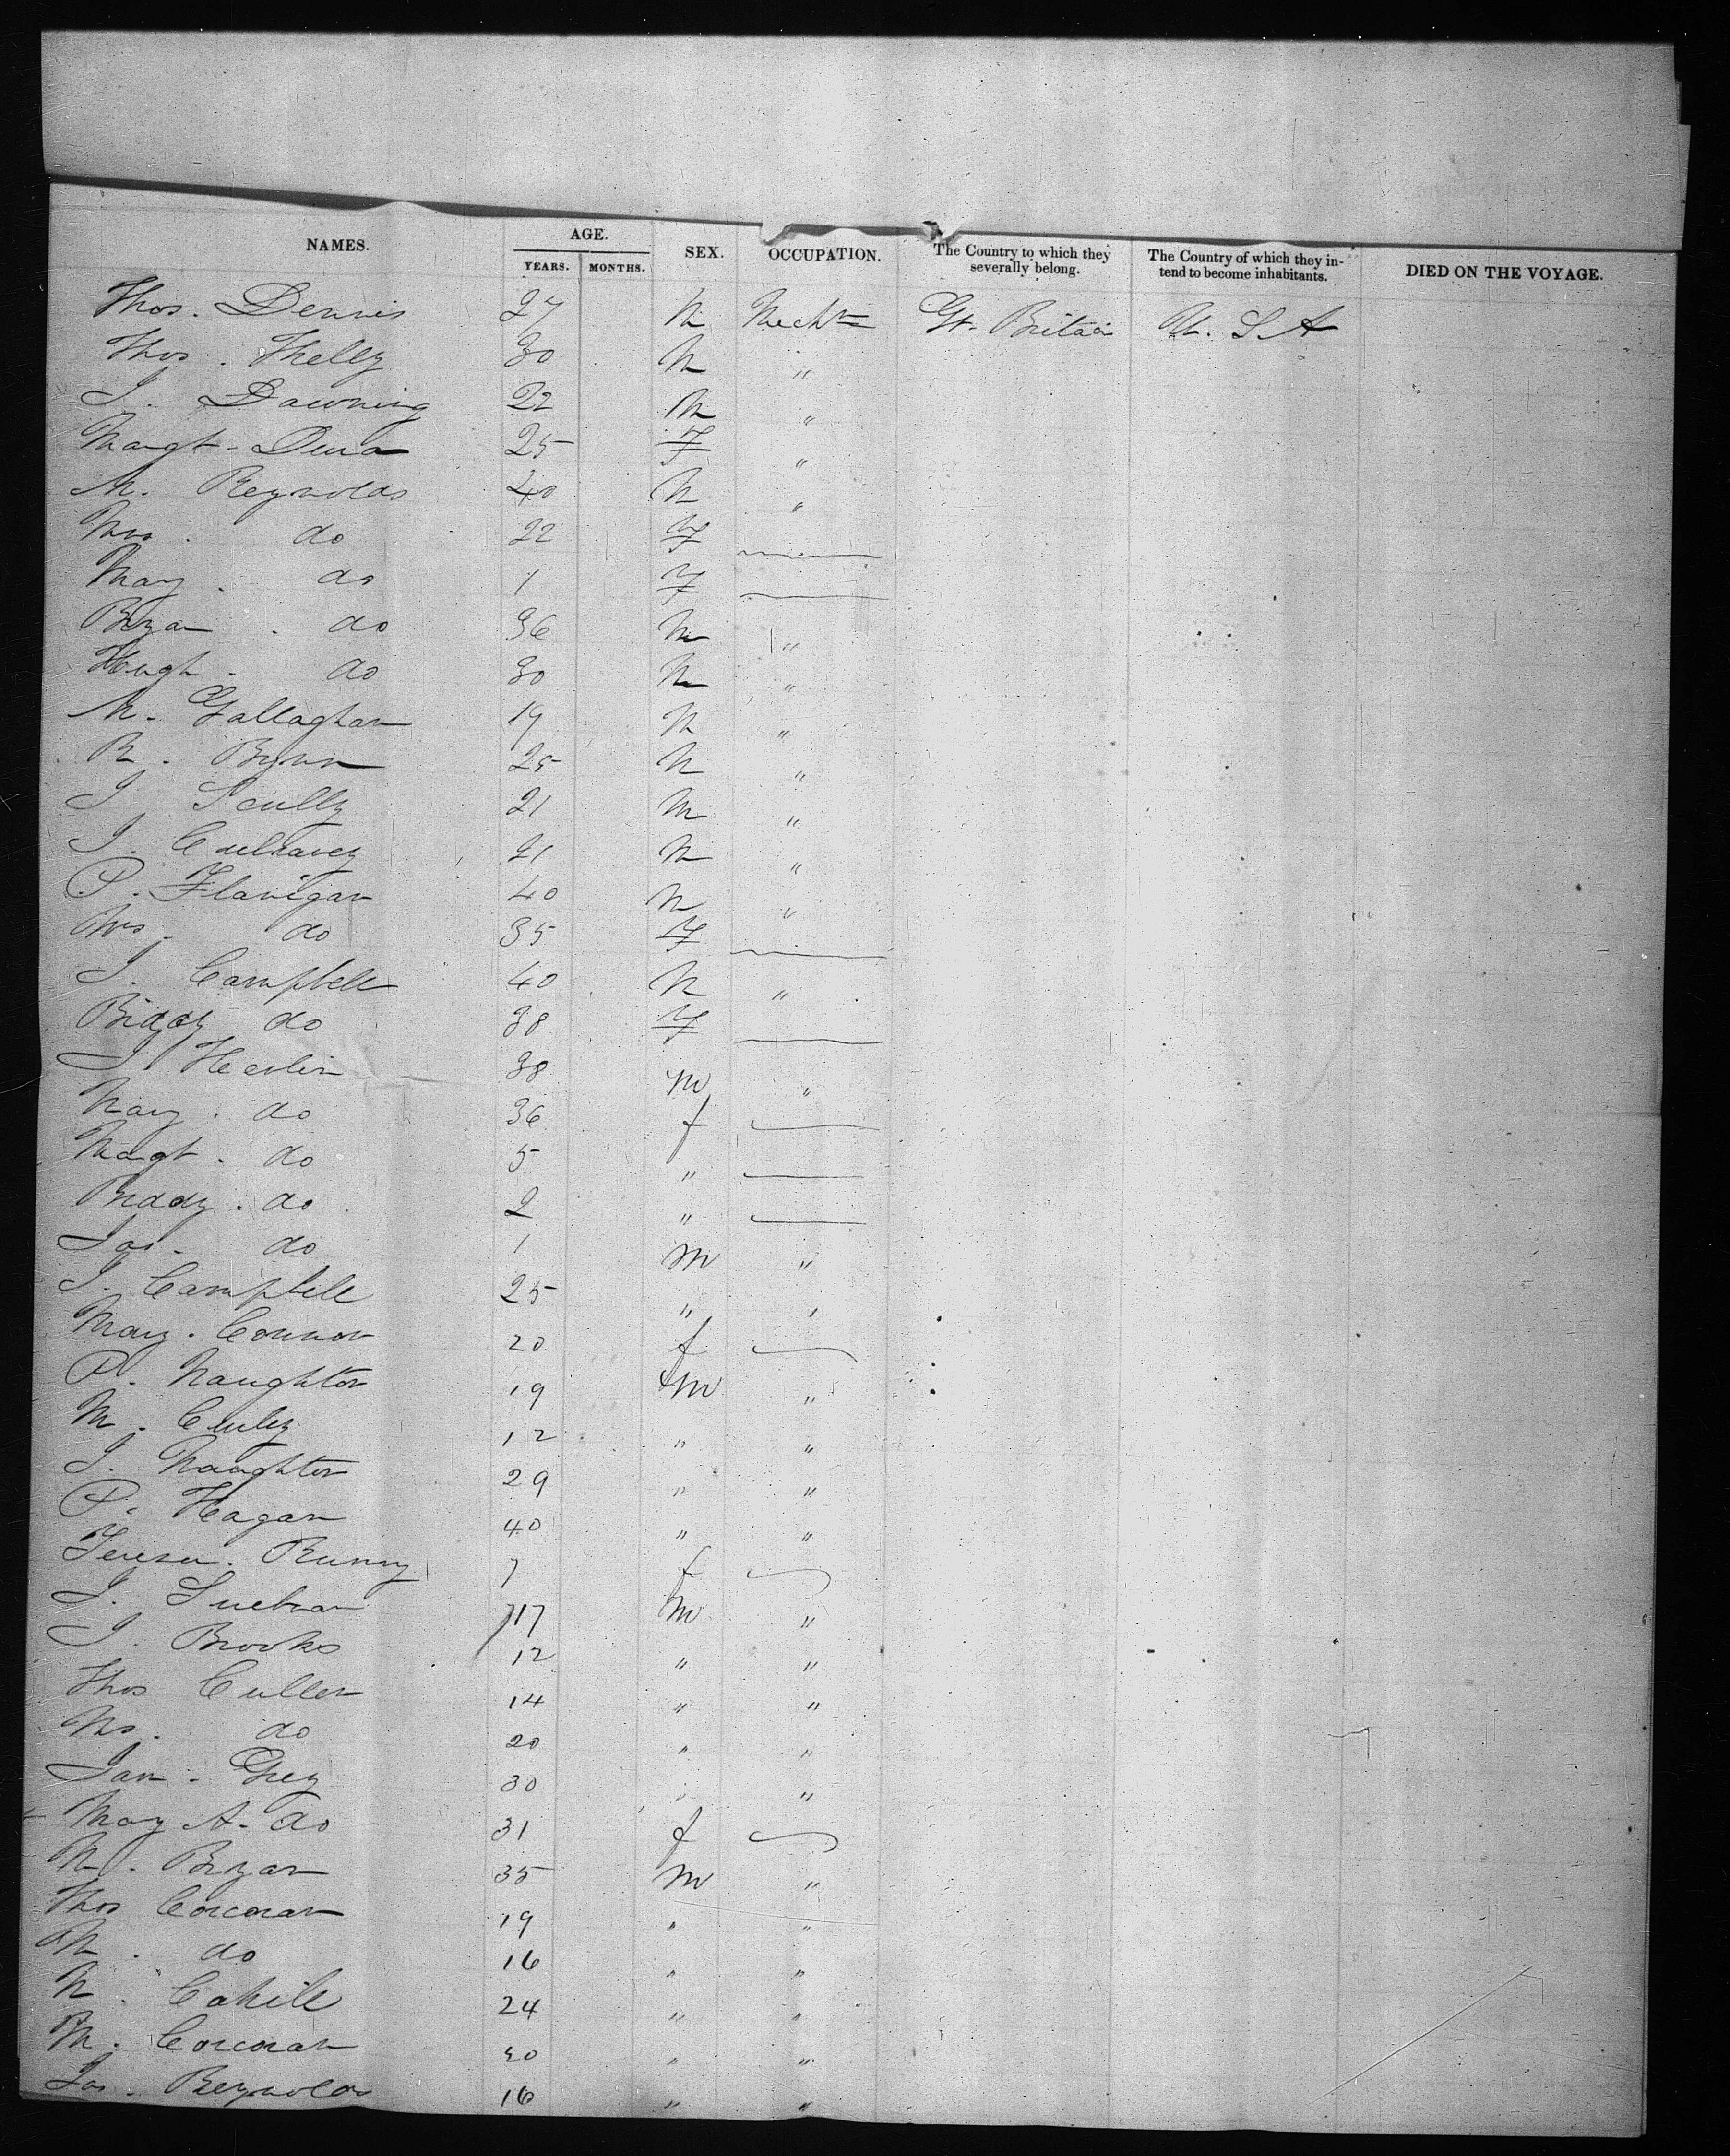 NAMES. AGE. SEX. OCCUPATION. The Country to which they severally belong. The Country of which they intend to become inhabitants. DIED ON THE VOYAGE.
YEARS. MONTHS.
Thos. Dennis 27 M Mechc Gt. Britain U. S. A
Thos. 30 M "
J. Dawning 22 M "
Margt. 25 F "
M. Reynolds 40 M "
Mrs. do 22 F
Mary. do 1 F
Bryan. do 36 M "
Hugh. do 30 M "
M. Gallaghan 19 M "
R. Brown 25 M "
J Scully 21 M "
J. 21 M "
P. Flanigan 40 M "
Mrs. do 35 F
J. Campbell 40 M "
Biddy do 38 F
J Heslin 38 M "
Mary. do 36 f
Margt. do 5 "
Biddy. do 2 "
Jas. do 1 M "
J. Campbell 25 " "
Mary. Connor 20 f
P. Naughton 19 M "
M. 12 " "
J. Naughton 29 " "
P. Hagan 40 " "
Teresa. 7 f
J. 17 M "
J. Brooks 12 " "
Thos Cullen 14 " "
do 20 " "
Grey 30 " "
Mary A. do 31 f
M. Bryan 35 M "
Thos Corcoran 19 " "
M. do 16 " "
M. Cahill 24 " "
M. Corcoran 20 " "
Jas. Reynolds 16 " "